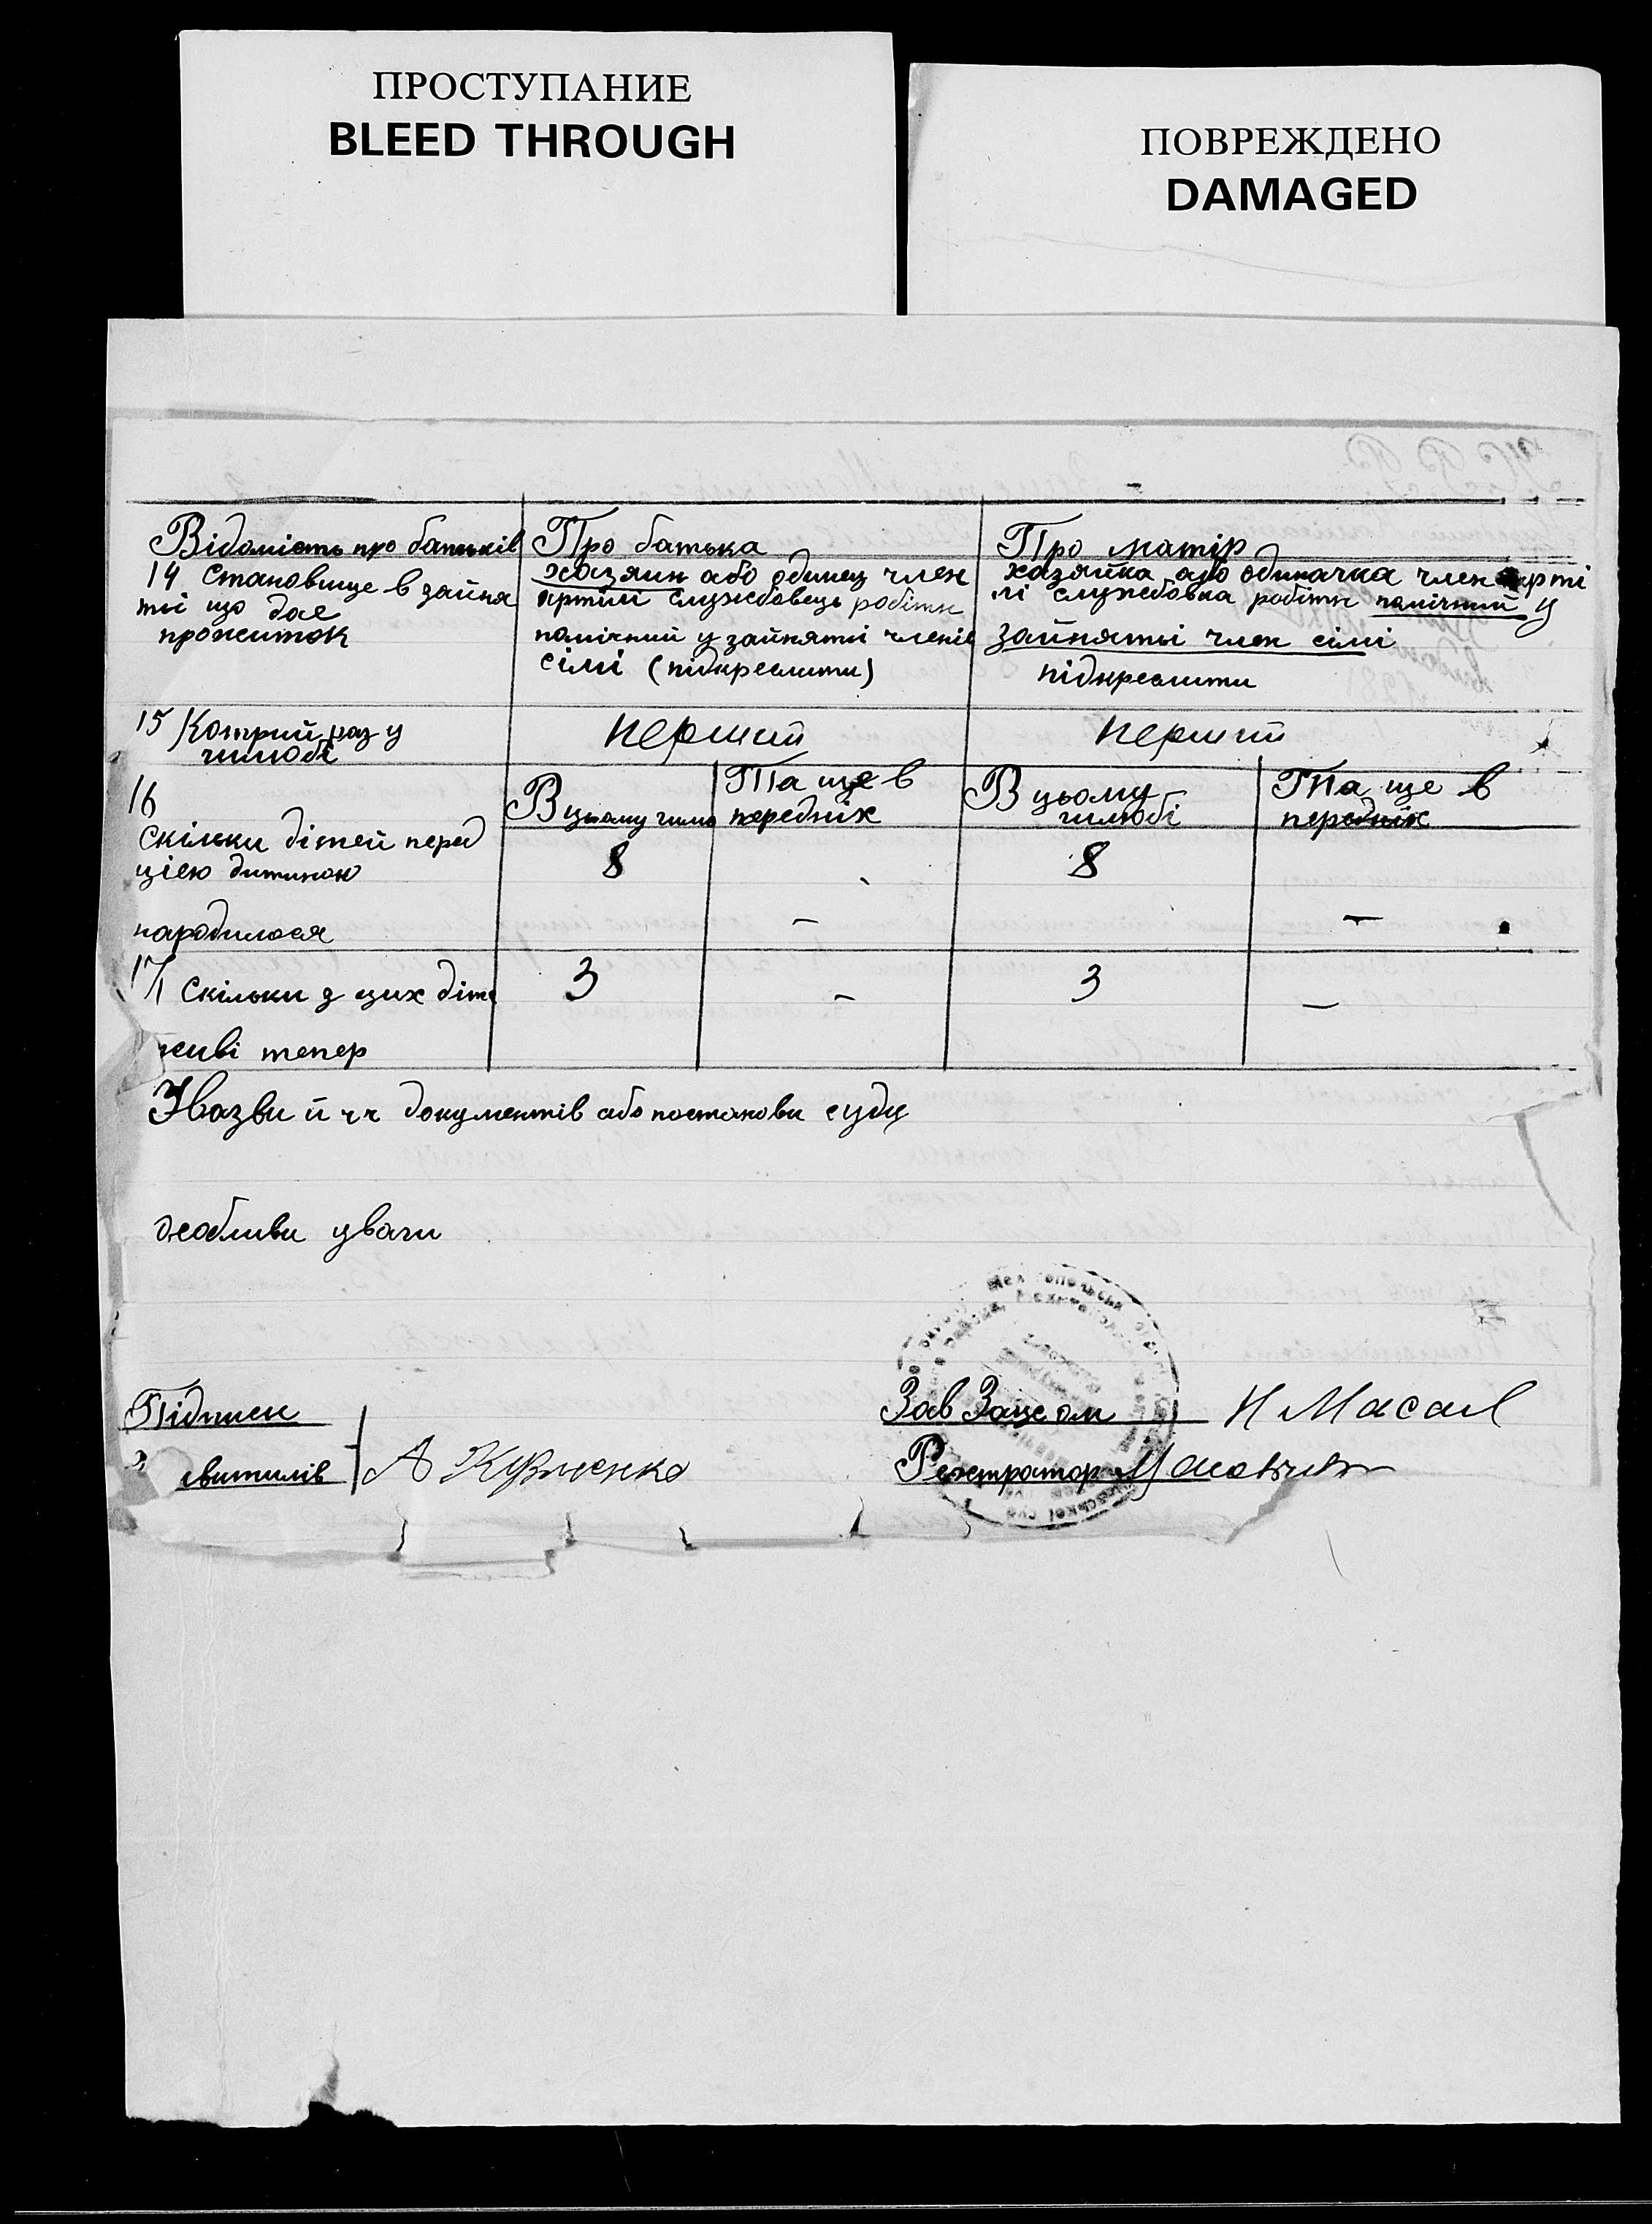 ПРОСТУПАНИЕ
BLEED THROUGH
ПОВРЕЖДЕНО
DAMAGED
Відомість про батьків
Про батька
Про матір
14 Становище в зайня
ті що дає
прожиток
хазяин або одинец член
артілі службовець робітн
помічний у зайняті членів
сімі (підкреслити)
хазяйка або одиначка член арті
лі службовка робітн помічний у
зайняті член сімі
підкреслити
15 Котрий раз у
шлюбі
перший
перший
16
Скільки дітей перед
цією дитиною
народилося
В цьому шлю
Та ще в
передніх
В цьому
шлюбі
Та ще в
передніх
8
-
8
-
17 Скільки з цих діте
живі тепер
3
-
3
-
Назви й чч документів або постанови суду
особливи уваги
Підписи
А Кузменко
Зав Загсом
Н Масал
Реэстратор